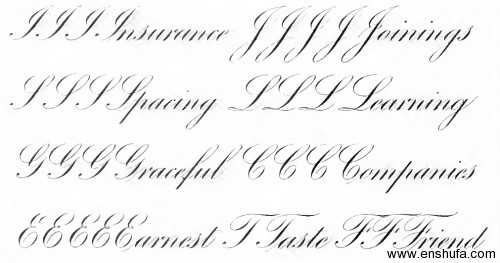 I I I Insurance J J J J Joinings
S S S Spacing L L L Learning
G G G Graceful C C C Companies
E E E E Earnest T Taste F F Friend
www.enshufa.com